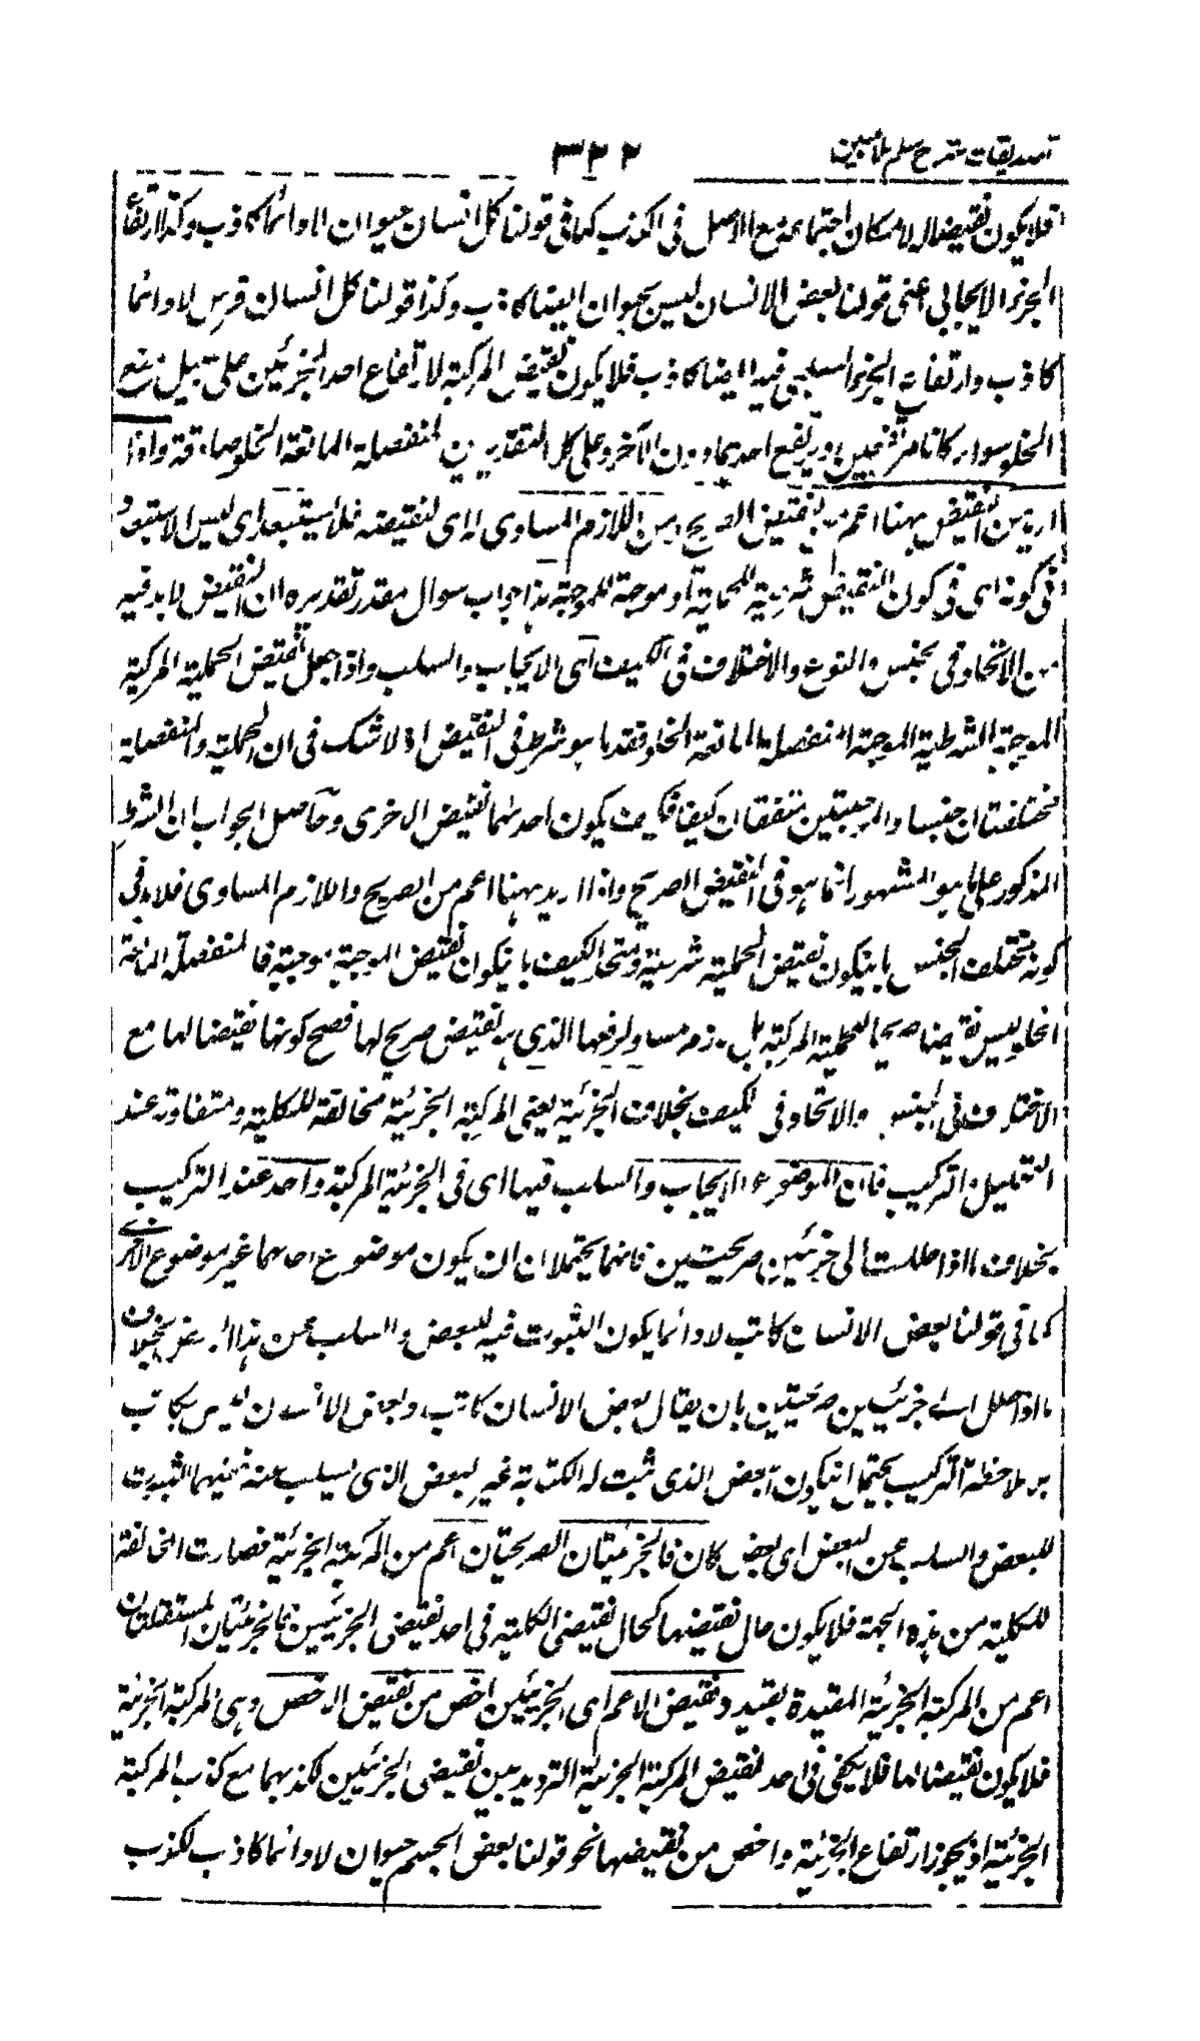 تصديقات شرح سلم ملا مبين
٣٢٢
فلا يكون نقيضا له لامكان اجتماعه مع الاصل فى الكذب كما فى قولنا كل انسان حيوان لا دائما كاذب وكذا ارتفاع
الجزء الايجابى اعنى قولنا بعض الانسان ليس بحيوان ايضا كاذب وكذا قولنا كل انسان فرس لا دائما
كاذب وارتفاع الجزء السلبى فيه ايضا كاذب فلا يكون نقيض المركبة لا ارتفاع احد الجزئين على سبيل منع
الخلو سواء كانا مرتفعين او يرتفع احدهما دون الآخر وعلى كل التقديرين المنفصلة المانعة الخلو صادقة واذا
اريد من النقيض ههنا اعم من النقيض الصريح ومن اللازم المساوى له اى لنقيضه فلا استبعاد اى ليس الاستبعاد
فى كونه اى فى كون النقيض شرطية للحملية او موجبة للموجبة هذا جواب سوال مقدر تقديره ان النقيض لا بد فيه
من الاتحاد فى الجنس والنوع والاختلاف فى الكيف اى الايجاب والسلب واذا جعل نقيض الحملية المركبة
الموجبة الشرطية الموجبة المنفصلة المانعة الخلو فقد ما هو شرط فى النقيض اذ لا شك فى ان الحملية والمنفصلة
مختلفتان جنسا والموجبتين متفقتان كيفا فكيف يكون احدهما نقيض الاخرى وحاصل الجواب ان الشرط
المذكور على ما هو المشهور انما هو فى النقيض الصريح واذا اريد ههنا اعم من الصريح واللازم المساوى فلا بعد فى
كونه مختلف الجنس بان يكون نقيض الحملية شرطية ومتحد الكيف بان يكون نقيض الموجبة موجبة فالمنفصلة المانعة
الخلو ليس نقيضا صريحا للحملية المركبة بل لازم مساو لرفعها الذى هو نقيض صريح لها فصح كونها نقيضا لها مع
الاختلاف فى الجنس والاتحاد فى الكيف بخلاف الجزئية يعنى المركبة الجزئية مخالفة للكلية ومتفاوتة عند
التحليل والتركيب فان الموضوع الايجاب والسلب فيها اى فى الجزئية المركبة واحد عند التركيب
بخلاف ما اذا حللت الى جزئين صريحتين فانهما يحتملان ان يكون موضوع احدهما غير موضوع الاخرى
كما فى قولنا بعض الانسان كاتب لا دائما يكون الثبوت فيه للبعض والسلب عن هذا البعض بخلاف
ما اذا حلل الى جزئيتين صريحتين بان يقال بعض الانسان كاتب وبعض الانسان ليس بكاتب
بلا ملاحظة التركيب يحتمل ان يكون البعض الذى ثبت له الكتابة غير البعض الذى يسلب عنه ففيهما الثبوت
للبعض والسلب عن البعض اى بعض كان فالجزئيتان الصريحتان اعم من المركبة الجزئية فصارت المخالفة
للكلية من هذه الجهة فلا يكون حال نقيضها كحال نقيضى الكلية فى احد نقيضى الجزئيين فالجزئيتان المستقلتان
اعم من المركبة الجزئية المقيدة بقيد ونقيض الاعم اى الجزئيتين اخص من نقيض الاخص وهى المركبة الجزئية
فلا يكون نقيضا لها فلا يكفى فى اخذ نقيض المركبة الجزئية الترديد بين نقيضى الجزئيين لكذبهما مع كذب المركبة
الجزئية اذ يجوز ارتفاع الجزئية واخص من نقيضها نحو قولنا بعض الجسم حيوان لا دائما كاذب لكذب